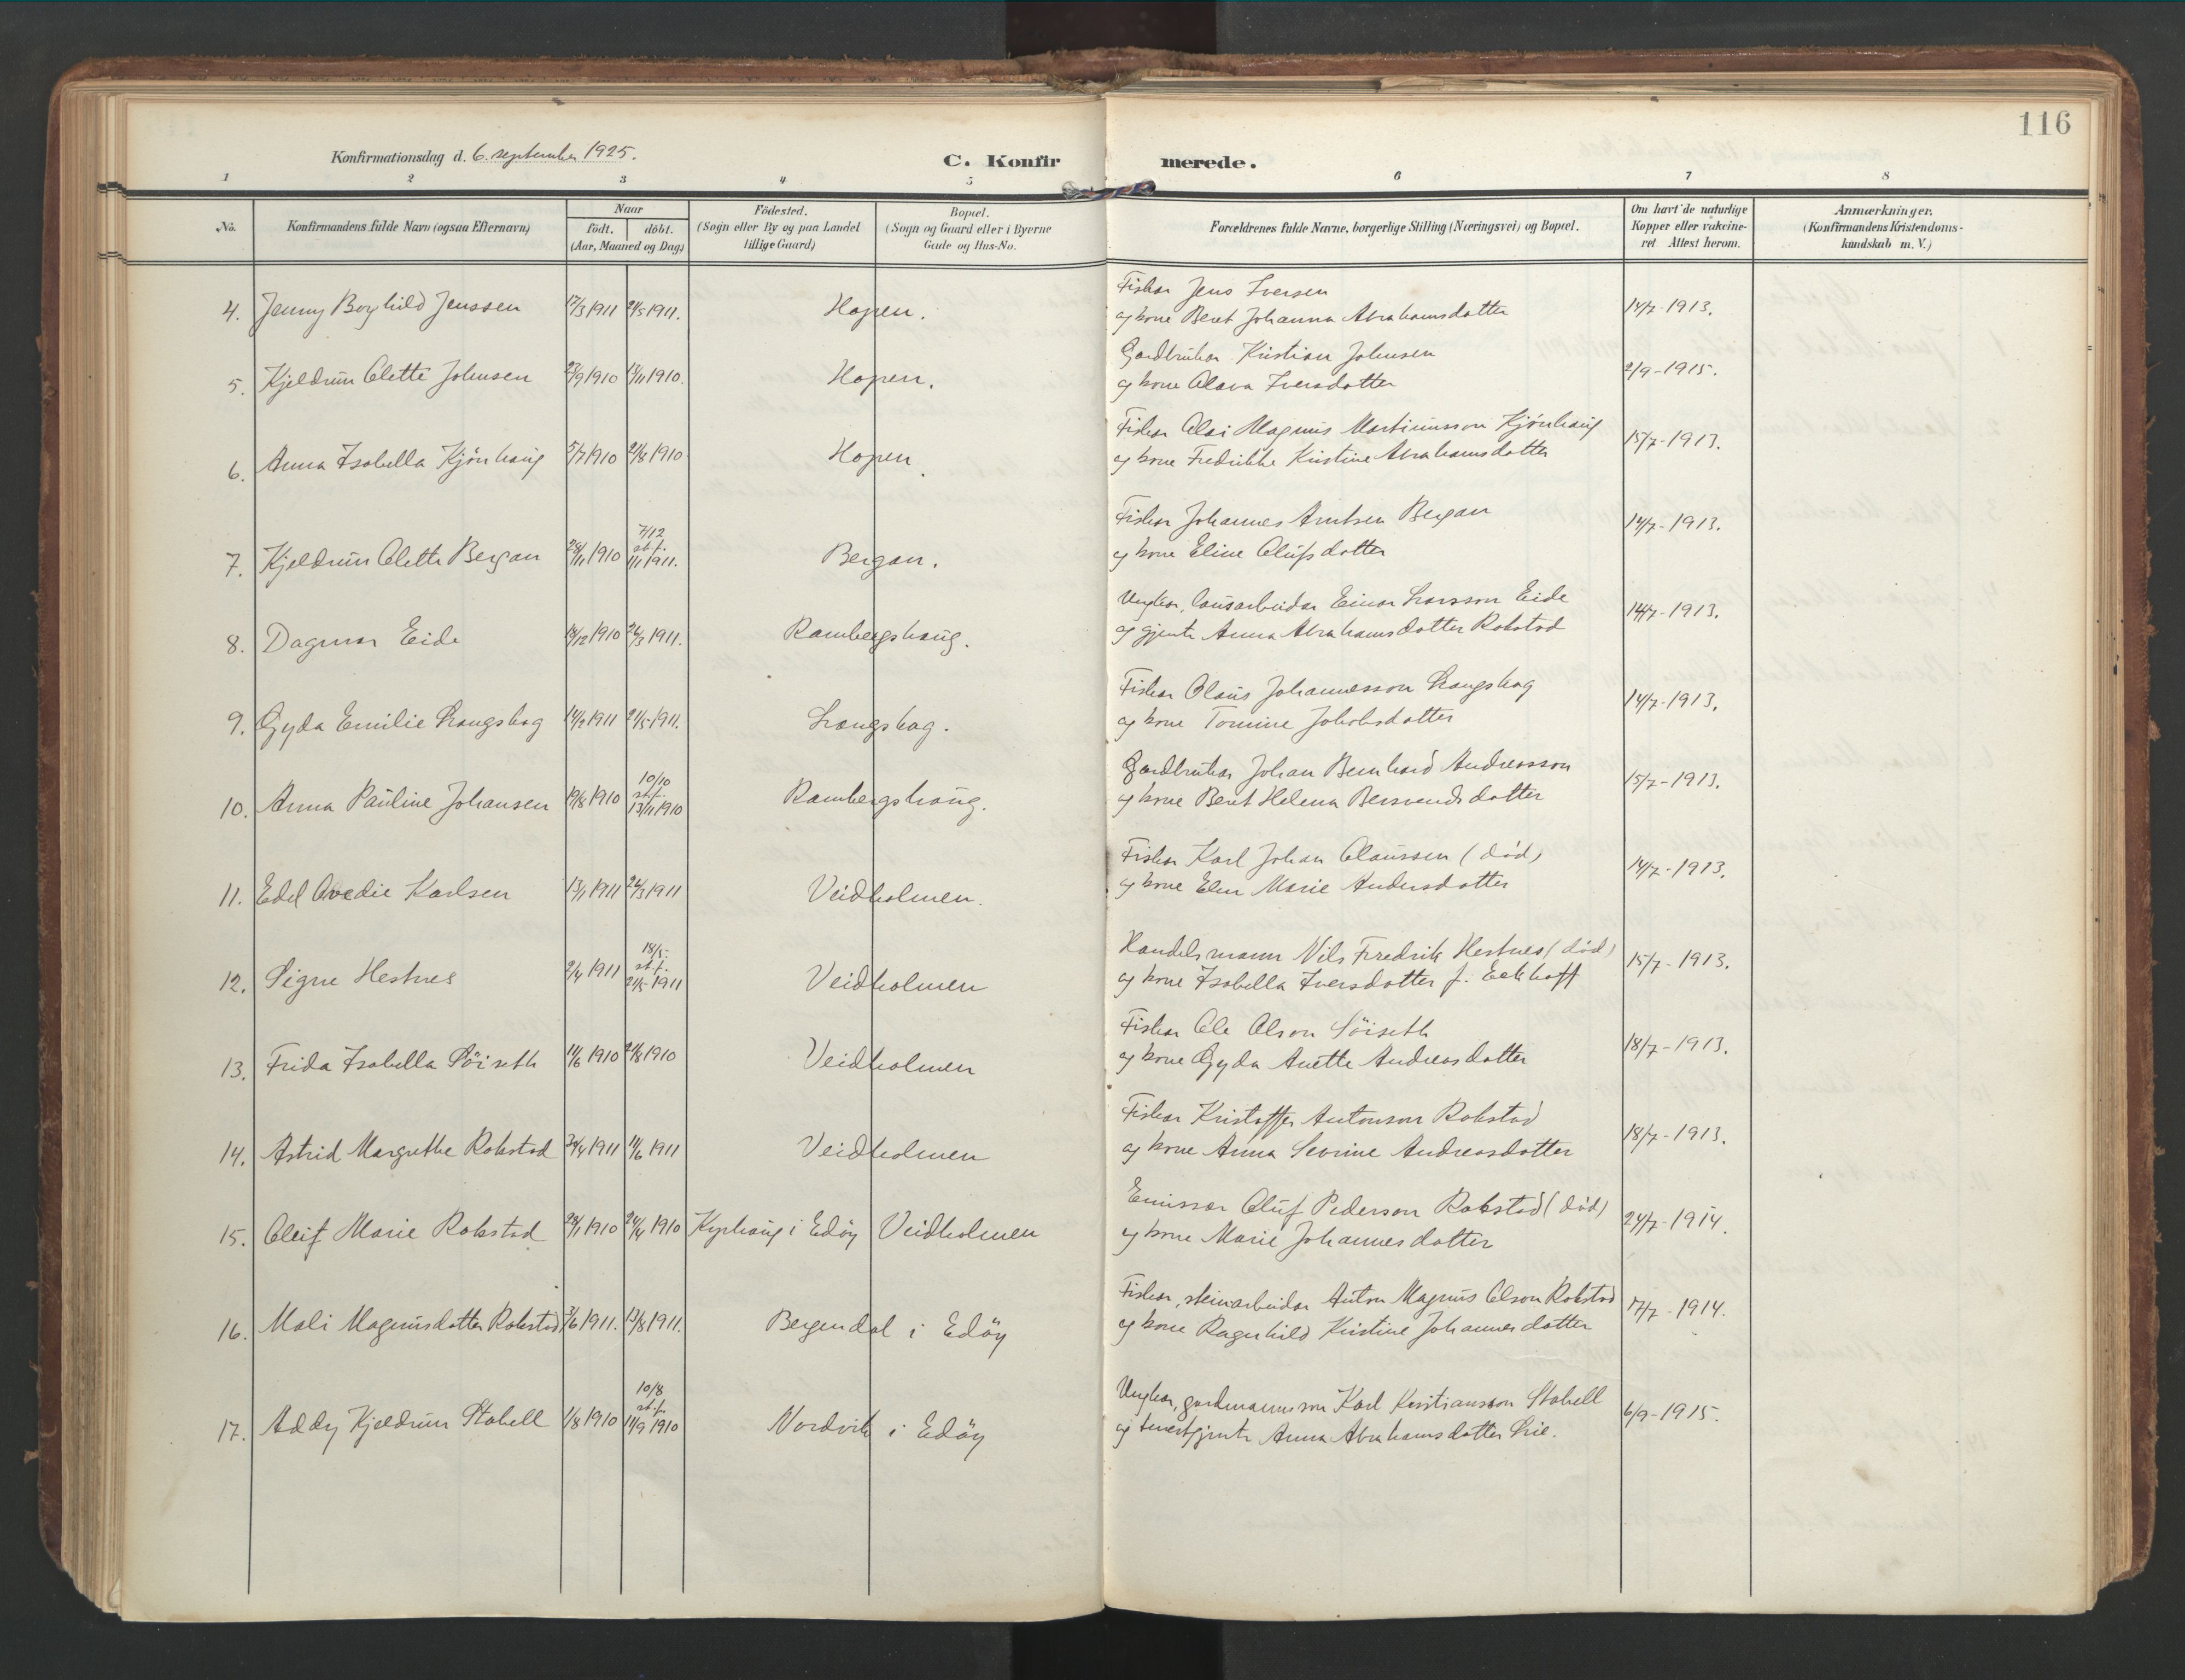 116
Konfirmationsdag d. 6. september 1925.
C. Konfirmerede.
1 2 3 4 5 6 7 8
No.
Konfirmandens fulde Navn (ogsaa Efternavn)
Naar
födt. döbt.
(Aar, Maaned og Dag)
Födested.
(Sogn eller By og paa Landet
tillige Gaard)
Bopæl.
(Sogn og Gaard eller i Byerne
Gade og Hus-No.
Forældrenes fulde Navne, borgerlige Stilling (Næringsvei) og Bopæl.
Om havt de naturlige
Kopper eller vakcine-
ret Attest herom.
Anmærkninger.
(Konfirmandens Kristendoms-
kundskab m. V.)
4. Jenny Borghild Jenssen 17/3 1911 21/5 1911. Hopen. Fiskar Jens Iversen
og kone Beret Johanna Abrahamsdatter 14/7-1913.
5. Kjeldrun Olette Johnsen 23/9 1910 13/11 1910. Hopen. Gardbrukar Kristian Johnsen
og kone Olava Iversdatter 2/9-1915.
6. Anna Isabella Kjönhaug 5/7 1910 21/8 1910 Hopen. Fiskar Olai Magnus Martinusson Kjönhaug
og kone Fredrikke Kristine Abrahamsdatter 15/7-1913.
7. Kjeldrun Olette Bergan 28/11 1910 7/12
st. f.
1/1 1911. Bergan. Fiskar Johannes Arntsen Bergan
og kone Eline Olufsdatter 14/7-1913.
8. Dagmar Eide 18/12 1910 26/3 1911. Rambergshaug. Ungkar, lausarbeidar Einar Larsson Eide
og gjente Anna Abrahamsdatter Rokstad 14/7-1913.
9. Gyda Emilie Langshag 14/2 1911 21/5 1911. Langshag. Fiskar Olaus Johannesson Langshag
og kone Tomine Jakobsdatter 14/7-1913.
10. Anna Pauline Johansen 19/8 1910 10/10
st. f.
13/11 1910 Rambergshaug. Gardbrukar Johan Bernhard Andreasson
og kone Beret Helena Bersvendsdatter 15/7-1913.
11. Edel Ovedie Karlsen 13/1 1911 26/3 1911 Veidholmen. Fiskar Karl Johan Olaussen (död)
og kone Elen Marie Andersdatter 14/7-1913.
12. Signe Hestnes 2/4 1911 18/5.
st. f.
21/5-1911 Veidholmen Handelsmann Nils Fredrik Hestnes (död)
og kone Isabella Iversdatter f. Eckhoff 15/7-1913.
13. Frida Isabella Söiseth 11/6 1910 21/8 1910 Veidholmen Fiskar Ole Olson Söiseth
og kone Gyda Anette Andreasdatter 18/7-1913.
14. Astrid Margrethe Rokstad 24/4 1911 11/6 1911 Veidholmen Fiskar Kristoffer Antonson Rokstad
og kone Anna Sevrine Andreasdatter 18/7-1913.
15. Oleif Marie Rokstad 28/1 1910 24/4 1910 Kyrhaug i Edöy Veidholmen Emissær Oluf Pederson Rokstad (död)
og kone Marie Johannesdatter 24/7-1914.
16. Mali Magnusdatter Rokstad 3/6 1911. 13/8 1911. Bergendal i Edöy Fiskar, steinarbeidar Anton Magnus Olson Rokstad
og kone Ragnhild Kristine Johannesdatter 17/7-1914.
17. Addy Kjeldrun Stabell 1/8 1910 10/8
st. f.
11/9 1910 Nordvik i Edöy Ungkar, gardmannsson Karl Kristiansson Stabell
og tenestgjente Anna Abrahamsdatter Lie. 6/9-1915.